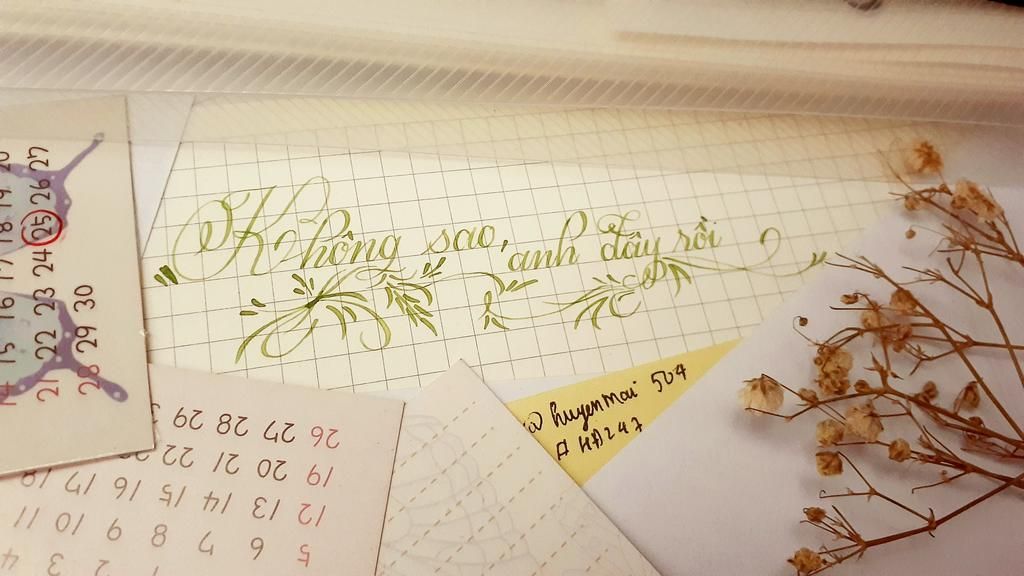 "Không sao, anh đây rồi"
@ huyenmai 504
A HA247
20
18 19
25 26 27
17
24
14 15 16
23
30
21 22
28 29
26 27 28 29
19 20 21 22 23
12 13 14 15 16 17 18
5 6 7 8 9 10 11
1 2 3 4